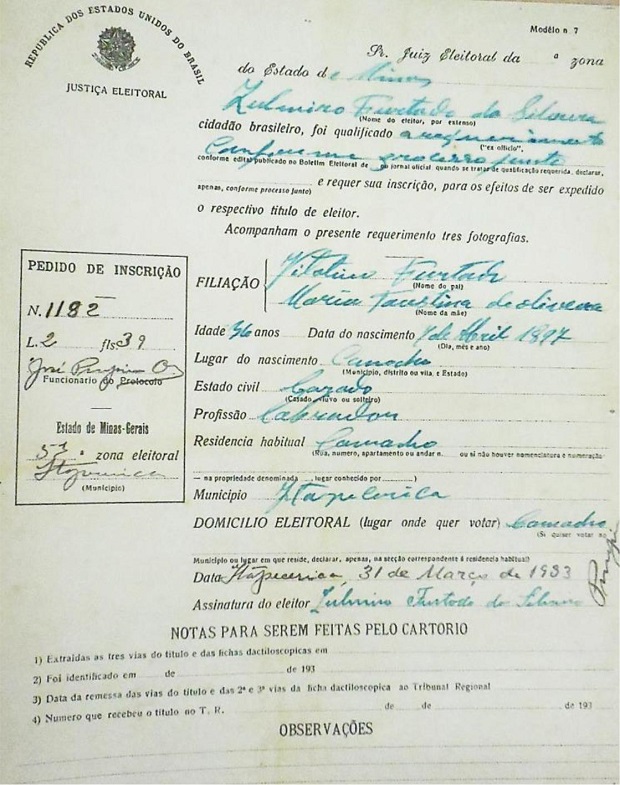 Modêlo n. 7
REPUBLICA DOS ESTADOS UNIDOS DO BRASIL
JUSTIÇA ELEITORAL
Sr. Juiz Eleitoral da ª zona
do Estado de Minas
Zulmiro Furtado da Silveira
(Nome do eleitor, por extenso)
cidadão brasileiro, foi qualificado a requerimento
("ex officio",
Conforme processo junto
conforme edital publicado no Boletim Eleitoral de ou jornal oficial quando se tratar de qualificação requerida, declarar,
apenas, conforme processo junto) e requer sua inscrição, para os efeitos de ser expedido
o respectivo titulo de eleitor.
Acompanham o presente requerimento tres fotografias.
PEDIDO DE INSCRIÇÃO
N. 1182
L. 2 fls 39
José
Funcionario do Protocolo
Estado de Minas-Gerais
ª zona eleitoral
Itapecerica
(Municipio)
FILIAÇÃO
Furtado
(Nome do pai)
Maria Faustina de oliveira
(Nome da mãe)
Idade 36 anos Data do nascimento 7 de Abril 1897
(Dia, mês e ano)
Lugar do nascimento Camacho
(Municipio, distrito ou vila, e Estado)
Estado civil Cazado
(Casado, viuvo ou solteiro)
Profissão Labrador
Residencia habitual Camacho
(Rua, numero, apartamento ou andar n. ou si não houver nomenclatura e numeração
— na propriedade denominada lugar conhecido por )
Municipio Itapecerica
DOMICILIO ELEITORAL (lugar onde quer votar) Camacho
(Si quiser votar no
Municipio ou lugar em que reside, declare, apenas, na secção correspondente á residencia habitual)
Data Itapecerica, 31 de Março de 1933
Assinatura do eleitor Zulmiro Furtado da Silveira
NOTAS PARA SEREM FEITAS PELO CARTORIO
1) Extraídas as tres vias do titulo e das fichas dactiloscopicas em
2) Foi identificado em de de 193
3) Data da remessa das vias do titulo e das 2ª e 3ª vias da ficha dactiloscopica ao Tribunal Regional
4) Numero que recebeu o titulo no T. R. de de de 193
OBSERVAÇÕES